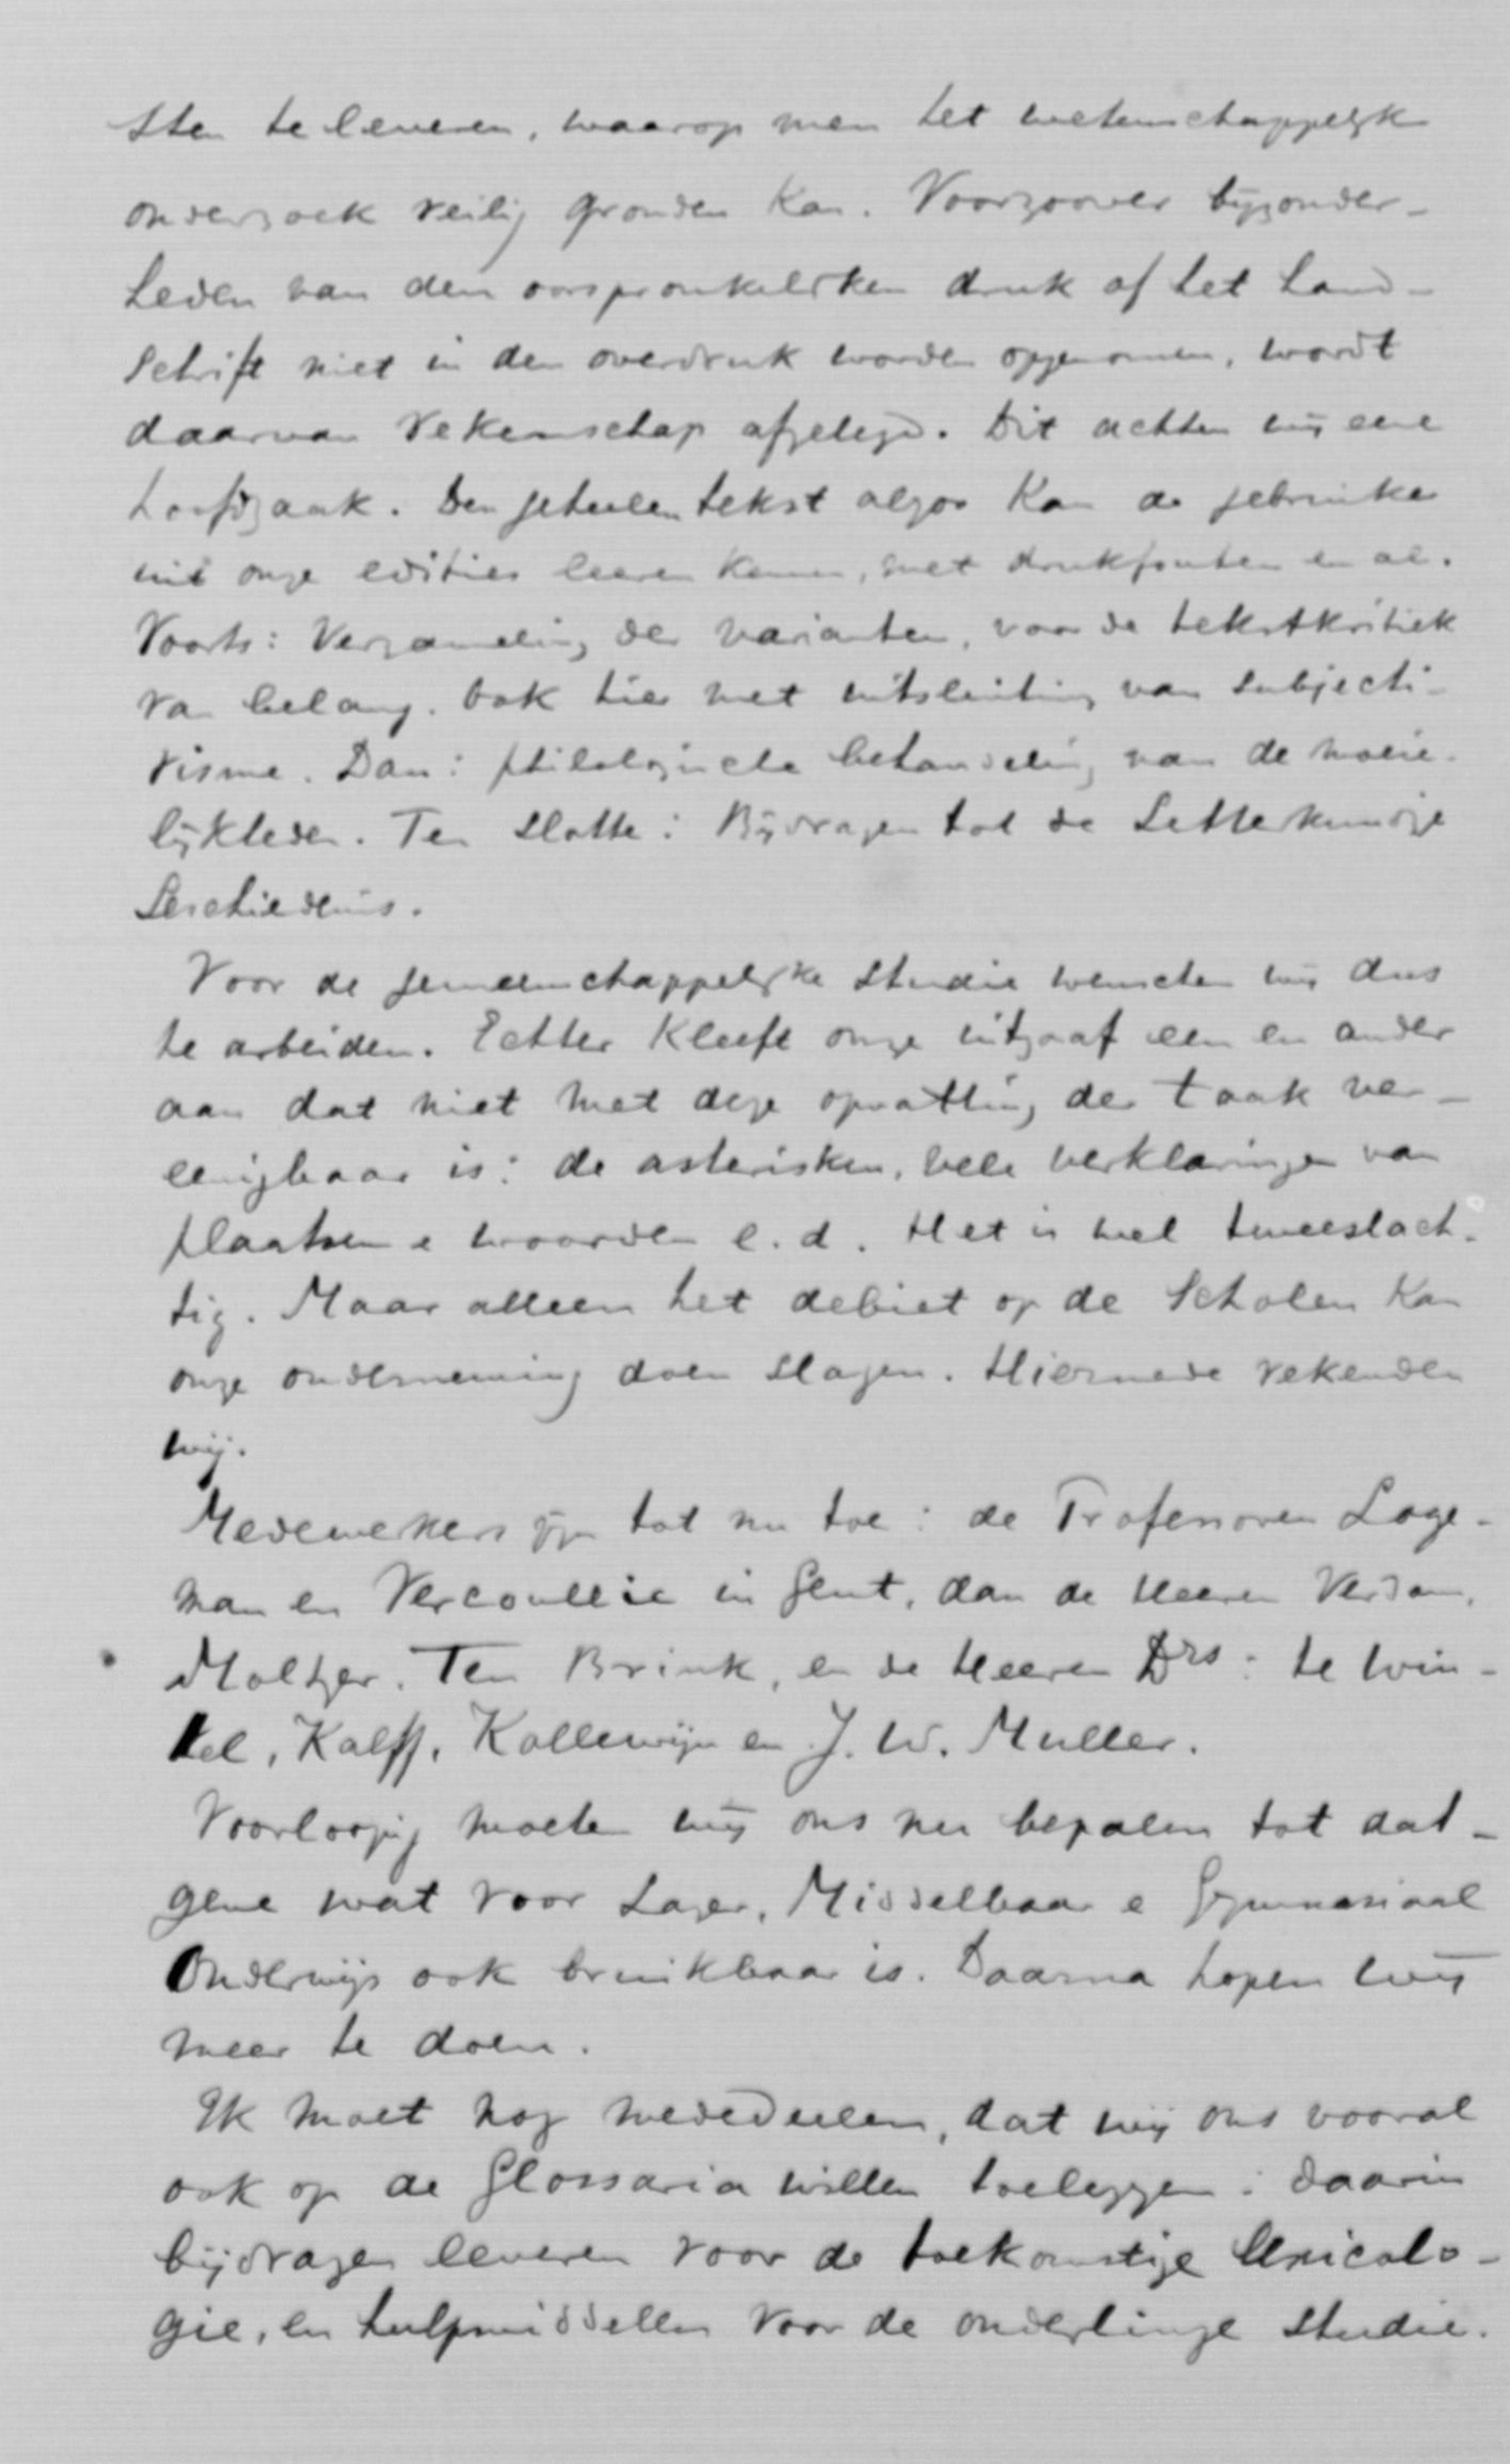 sten te leveren, waarop men het wetenschappelijk
onderzoek veilig gronden kan. Voorzoover bijzonder-
heden van den oorspronkelijken druk of het hand-
schrift niet in den overdruk worden opgenomen, wordt
daarvan rekenschap afgelegd. Dit achten wij eene
hoofdzaak. Den geheelen tekst alzoo kan de gebruiker
uit onze edities leeren kennen, met drukfouten en al.
Voorts: Verzameling der varianten, voor de tekstkritiek
van belang. Ook hier met uitsluiting van subjecti-
visme. Dan: philologische behandeling van de moeie-
lijkheden. Ten slotte: Bijdragen tot de Letterkundige
Geschiedenis.
Voor de gemeenschappelijke studie wenschen wij dus
te arbeiden. Echter kleeft onze uitgaaf een en ander
aan dat niet met deze opvatting der taak ver-
eenigbaar is: de asterisken, vele verklaringen van
plaatsen e woorden e.d. Het is wel tweeslach-
tig. Maar alleen het debiet op de Scholen kan
onze onderneming doen slagen. Hiermede rekenden
wij.
Medewerkers zijn tot nu toe: de Professoren Loge-
man en Vercoullie in Gent, dan de Heeren Verdam,
Moltzer, Ten Brink, en de Heeren Drs: te Win-
kel, Kalff, Kollewijn en J. W. Muller.
Voorloopig moeten wij ons nu bepalen tot dat-
gene wat voor Lager, Middelbaar e Gymnasiaal
Onderwijs ook bruikbaar is. Daarna hopen wij
meer te doen.
Ik moet nog mededeelen, dat wij ons vooral
ook op de Glossaria willen toeleggen: daarin
bijdragen leveren voor de toekomstige lexicolo-
gie, en hulpmiddelen voor de onderlinge studie.